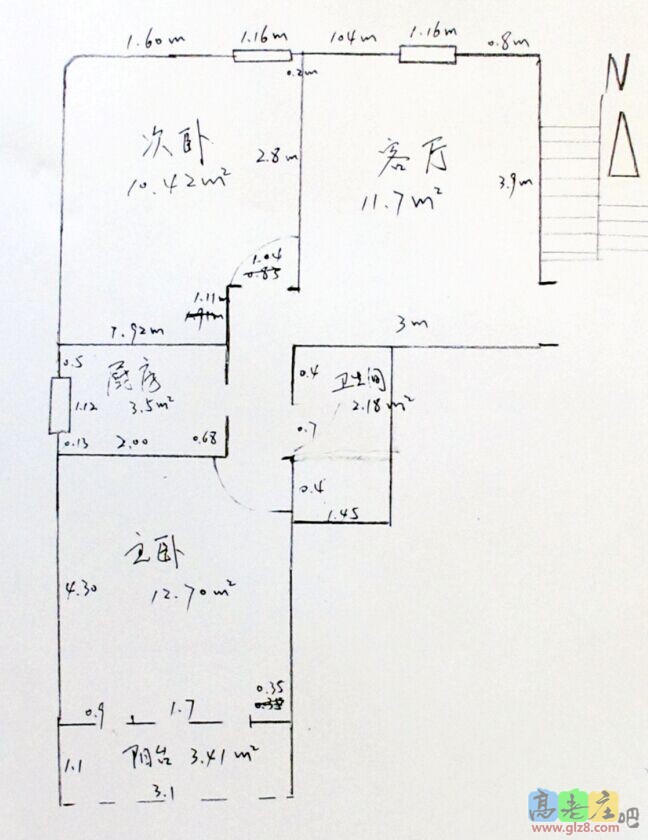 1.60m 1.16m 1.04 m 1.16m 0.8m
0.2m
N
次卧
10.42m²
2.8m
客厅
11.7m²
3.9m
1.04
0.85
1.11m
0.91m
1.92m
3m
0.5
厨房
1.12
3.5m²
0.13 2.00 0.68
0.4
卫生间
2.18m²
0.7
0.4
1.45
主卧
4.30
12.70m²
0.35
0.9 1.7
1.1
阳台 3.41m²
3.1
高老庄吧
www.glz8.com